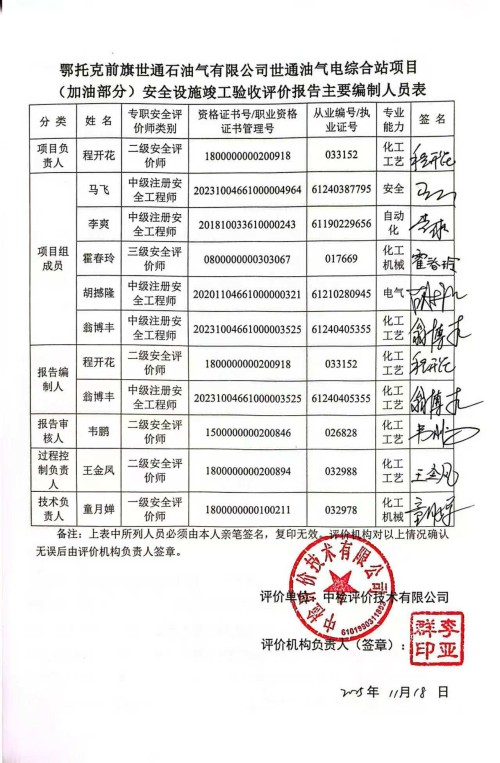 鄂托克前旗世通石油气有限公司世通油气电综合站项目
（加油部分）安全设施竣工验收评价报告主要编制人员表
分 类 姓 名 专职安全评价师类别 资格证书号/职业资格证书管理号 从业编号/执业证号 专业能力 签 名
项目负责人 程开花 二级安全评价师 1800000000200918 033152 化工工艺 程开花
项目组成员 马飞 中级注册安全工程师 20231004661000004964 61240387795 安全
李爽 中级注册安全工程师 201810033610000243 61190229656 自动化
霍春玲 三级安全评价师 0800000000303067 017669 化工机械 霍春玲
胡撼隆 中级注册安全工程师 20201104661000000321 61210280945 电气
翁博丰 中级注册安全工程师 20231004661000003525 61240405355 化工工艺 翁博丰
报告编制人 程开花 二级安全评价师 1800000000200918 033152 化工工艺 程开花
翁博丰 中级注册安全工程师 20231004661000003525 61240405355 化工工艺 翁博丰
报告审核人 韦鹏 二级安全评价师 1500000000200846 026828 化工工艺 韦鹏
过程控制负责人 王金凤 二级安全评价师 1800000000200894 032988 化工工艺 王金凤
技术负责人 童月婵 一级安全评价师 1800000000100211 032978 化工机械 童月婵
备注：上表中所列人员必须由本人亲笔签名，复印无效。评价机构对以上情况确认
无误后由评价机构负责人签章。
评价单位：中检评价技术有限公司
中检评价技术有限公司
评价机构负责人（签章）：
李亚群印
2025年 11月 18 日